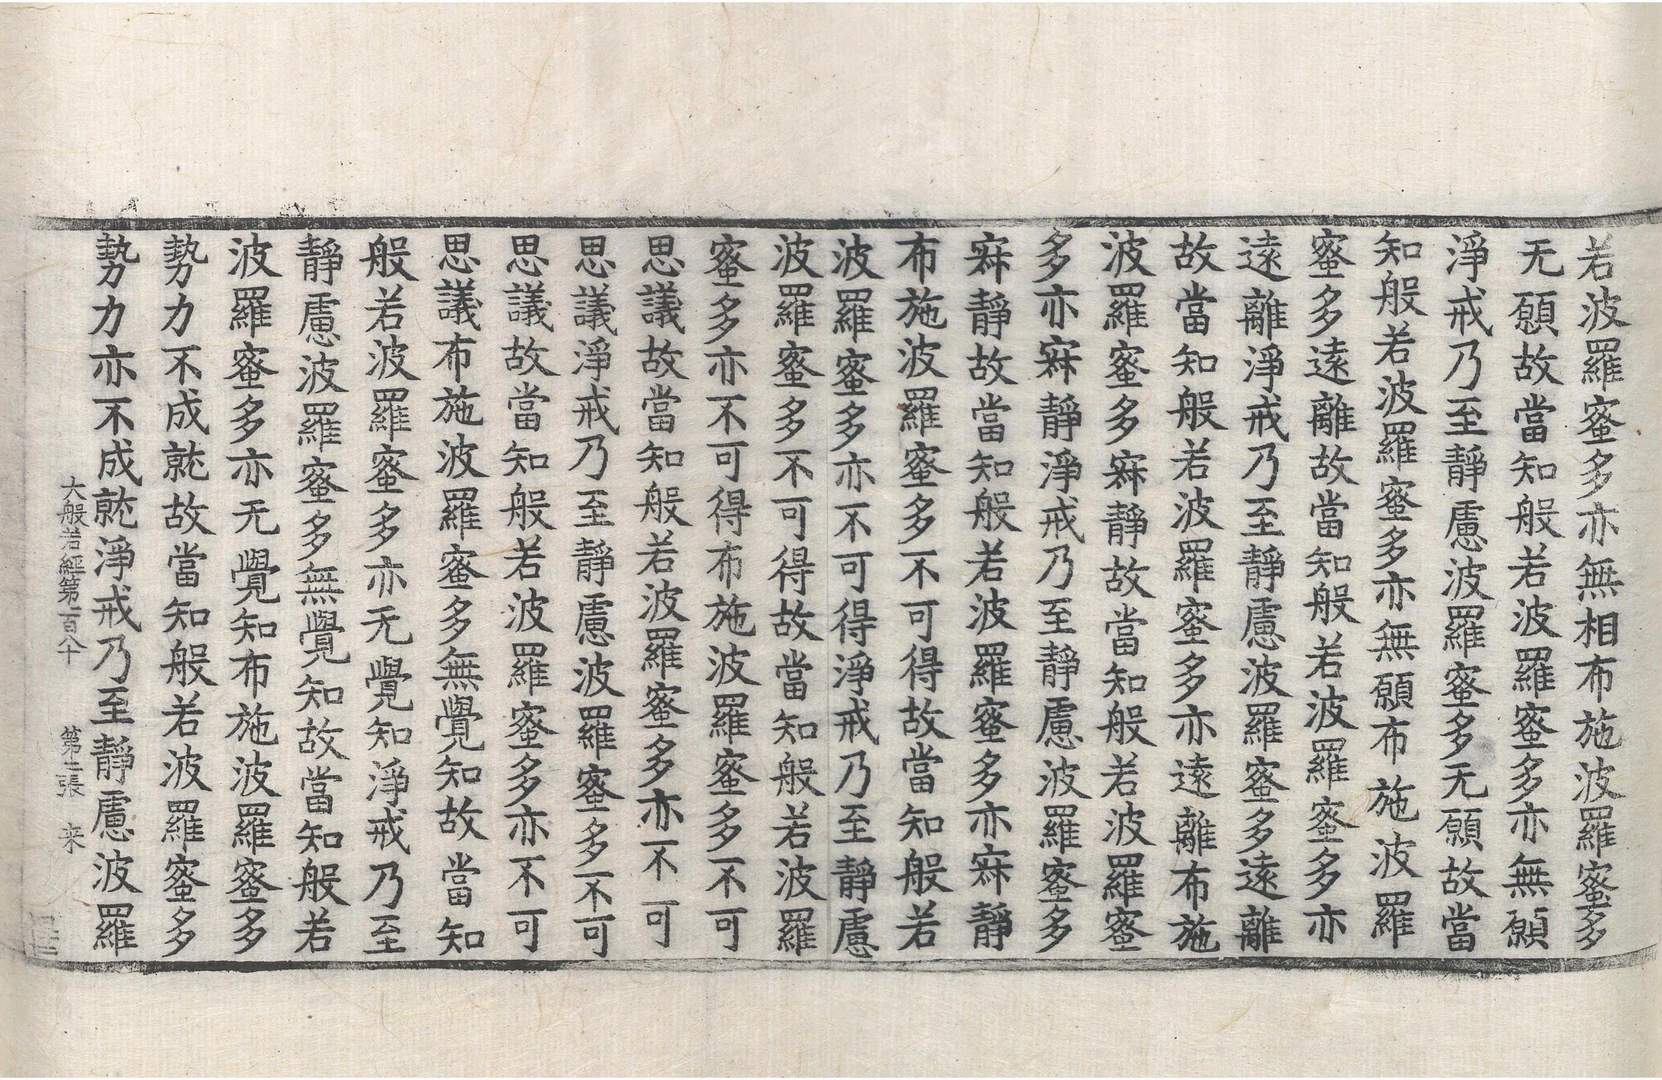 若波羅蜜多亦無相布施波羅蜜多
无願故當知般若波羅蜜多亦無願
淨戒乃至靜慮波羅蜜多无願故當
知般若波羅蜜多亦無願布施波羅
蜜多遠離故當知般若波羅蜜多亦
遠離淨戒乃至靜慮波羅蜜多遠離
故當知般若波羅蜜多亦遠離布施
波羅蜜多寂靜故當知般若波羅蜜
多亦寂靜淨戒乃至靜慮波羅蜜多
寂靜故當知般若波羅蜜多亦寂靜
布施波羅蜜多不可得故當知般若
波羅蜜多亦不可得淨戒乃至靜慮
波羅蜜多不可得故當知般若波羅
蜜多亦不可得布施波羅蜜多不可
思議故當知般若波羅蜜多亦不可
思議淨戒乃至靜慮波羅蜜多不可
思議故當知般若波羅蜜多亦不可
思議布施波羅蜜多無覺知故當知
般若波羅蜜多亦无覺知淨戒乃至
靜慮波羅蜜多無覺知故當知般若
波羅蜜多亦无覺知布施波羅蜜多
勢力不成就故當知般若波羅蜜多
勢力亦不成就淨戒乃至靜慮波羅
大般若經第一百八十 第張 来